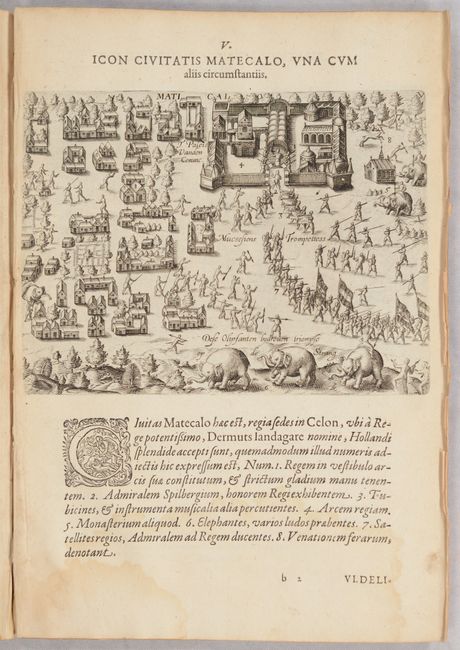 V.
ICON CIVITATIS MATECALO, VNA CVM
aliis circumstantiis.
MATI CAL O
T'Palei
Vanden
Coninc
4
8
Mucesiens Trompetters
Dese Olyfanten bedreven triumphe
CIuitas Matecalo hæc est, regia sedes in Celon, vbi à Re-
ge potentissimo, Dermuts Iandagare nomine, Hollandi
splendide accepti sunt, quemadmodum illud numeris ad-
iectis hic expressum est, Num. 1. Regem in vestibulo ar-
cis suæ constitutum, & strictum gladium manu tenen-
tem. 2. Admiralem Spilbergium, honorem Regi exhibentem. 3. Tu-
bicines, & instrumenta musicalia alia percutientes. 4. Arcem regiam.
5. Monasterium aliquod. 6. Elephantes, varios ludos præbentes. 7. Sa-
tellites regios, Admiralem ad Regem ducentes. 8. Venationem ferarum,
denotant.
b 2 VI. DELI-